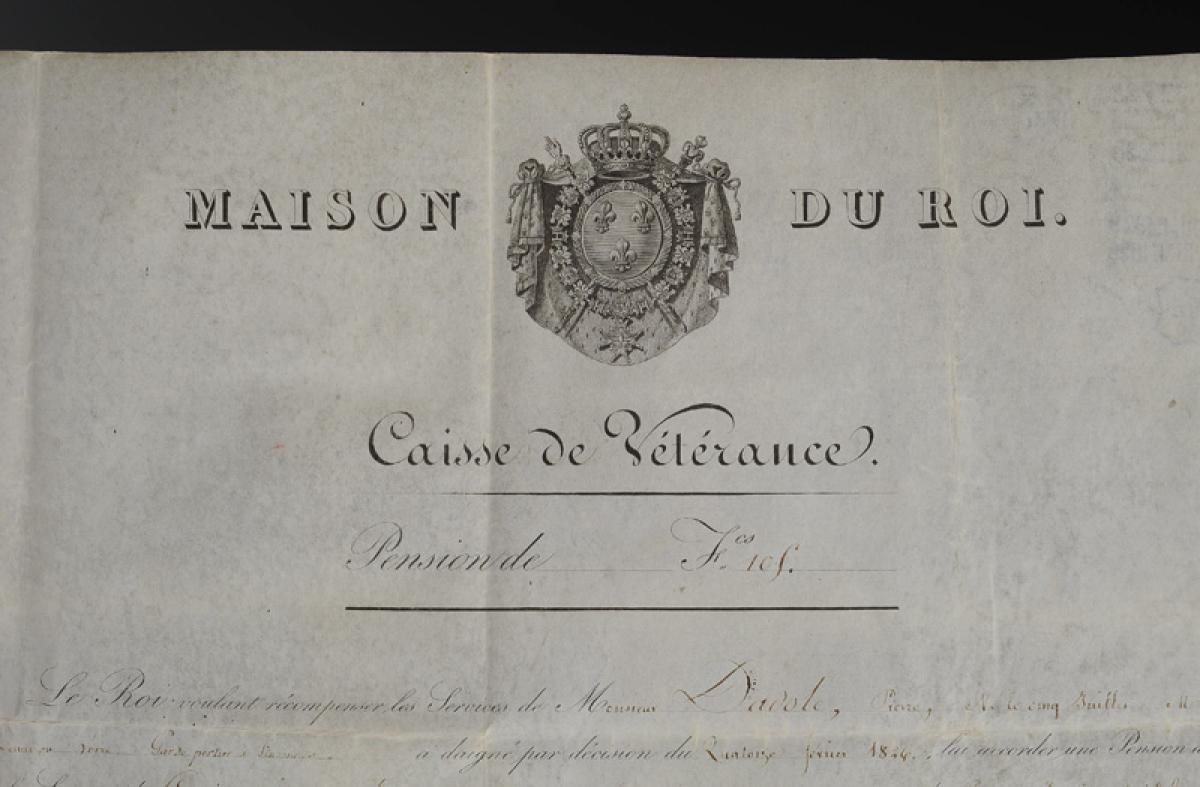 MAISON DU ROI.
Caisse de Vétérance.
Pension de F.cs 105.
Le Roi voulant récompenser les Services de Monsieur Davole, Pierre, Né le cinq Juillet M
a daigné par décision du Quatorze février 1826, lui accorder une Pension